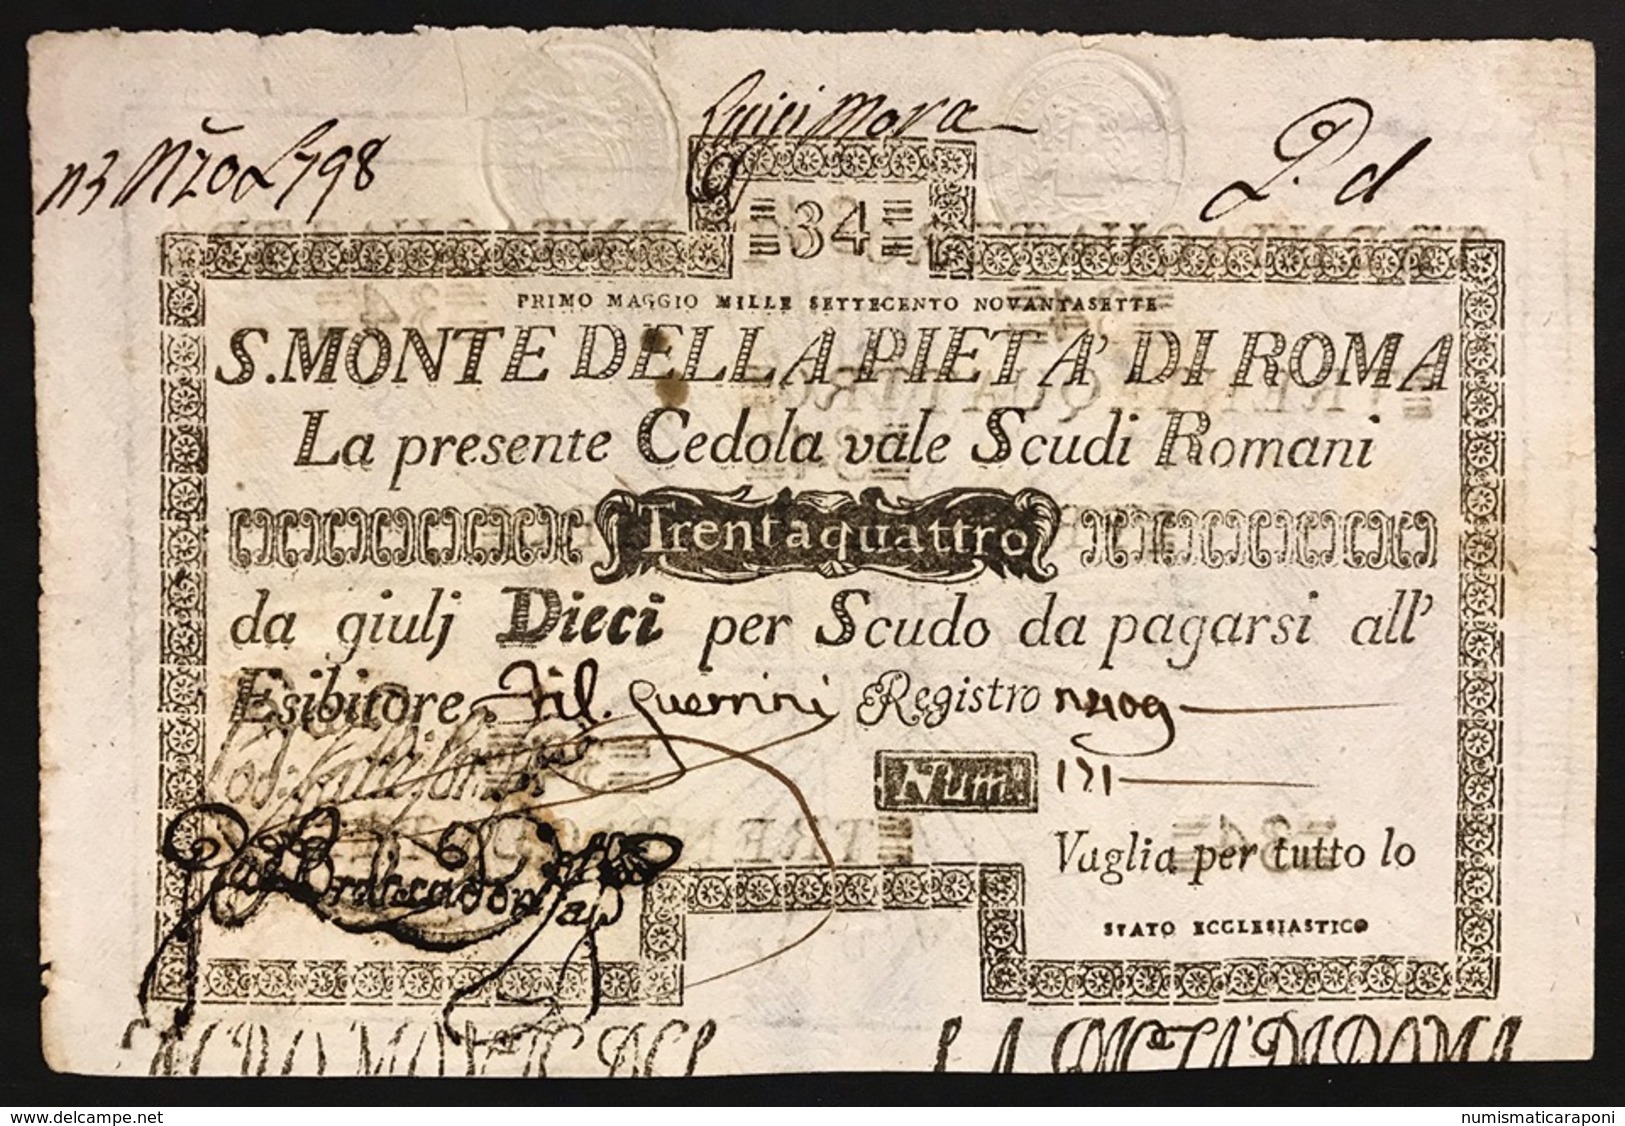 Luigi Mora
P. d
=34=
PRIMO MAGGIO MILLE SETTECENTO NOVANTASETTE
S. MONTE DELLA PIETA' DI ROMA
La presente Cedola vale Scudi Romani
Trentaquattro
da giulj Dieci per Scudo da pagarsi all'
Esibitore Fil. Guerrini Registro n409
Num. 171
Vaglia per tutto lo
STATO ECCLESIASTICO
numismaticaraponi
www.delcampe.net